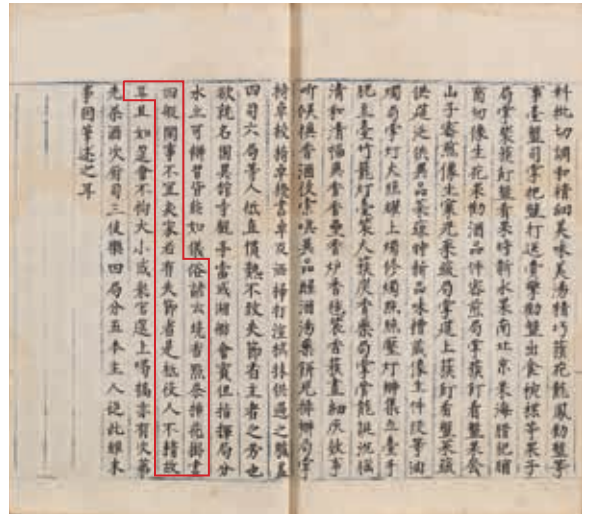 料批切調和精細美味羹湯精巧簇花龍鳳勸盤等
事臺盤司掌把盤打送賫擎勸盤出食椀楪等果子
局掌裝簇飣盤看果時新水果南北京果海腊肥脯
臠切像生花果勸酒品件蜜煎局掌簇飣看盤果套
山子蜜煎像生窠兒菜蔬局掌筵上簇飣看盤菜蔬
供筵泛供異品菜蔬時新品味糟藏像生件段等油
燭局掌灯火照耀上燭修燭點照壓灯辦集立臺手
把豆臺竹籠灯臺裝火簇炭香藥局掌管龍涎沉腦
清和清福異香香壘香炉香毬裝香簇燼細灰效事
听候換香酒後索喚異品醒酒湯藥餅兒排辦局掌
椅卓交椅卓櫈書卓及洒掃打渲拭抹供過之職盖
四司六局等人祗直慣熟不致失節省主者之劳也
欲就名園異館寺觀亭臺或湖舫會賓但指揮局分
可皆能如儀俗諺云燒香點茶插花掛畫
四般閒事不宜累家若有失節者是祗役人不精故
耳且如筵會不拘大小或衆官筵上喝犒亦有次第
先茶酒次厨司三伎樂四局分五本主人從此雖末
事因筆述之耳